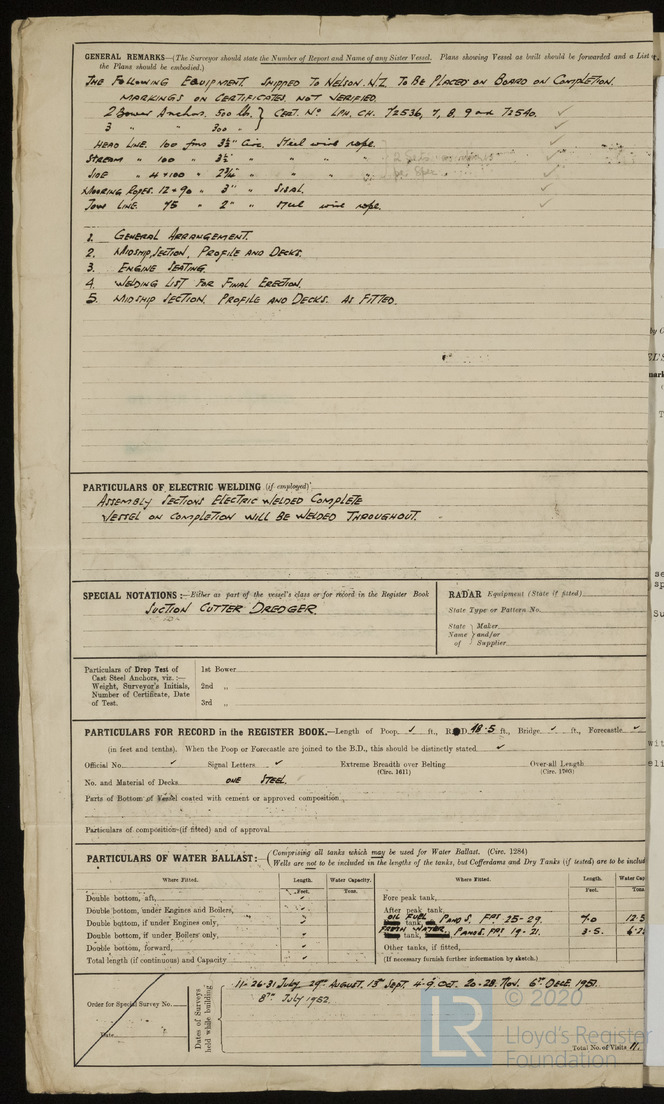 GENERAL REMARKS—(The Surveyor should state the Number of Report and Name of any Sister Vessel. Plans showing Vessel as built should be forwarded and a List
the Plans should be embodied.)
THE FOLLOWING EQUIPMENT. SHIPPED TO NELSON. N.Z. TO BE PLACED ON BOARD ON COMPLETION.
MARKINGS ON CERTIFICATES. NOT VERIFIED.
2 Bower Anchors. 500 lb. } CERT. No LPH. CH. 72536, 7, 8, 9 and 72540. ✓
3 " " 300 "
HEAD LINE. 100 fms 3½" Circ. Steel wire rope. ✓
STREAM " 100 " 3½" " " " " ✓
SIDE " 4 × 100 " 2¾" " " " " ✓
MOORING ROPES. 12 × 90 " 3" " SISAL. ✓
TOW LINE. 75 " 2" " Steel wire rope. ✓
1. GENERAL ARRANGEMENT.
2. MIDSHIP SECTION, PROFILE AND DECKS.
3. ENGINE SEATING.
4. WELDING LIST FOR FINAL ERECTION.
5. MIDSHIP SECTION. PROFILE AND DECKS. AS FITTED.
PARTICULARS OF ELECTRIC WELDING (if employed)
ASSEMBLY SECTIONS ELECTRIC WELDED COMPLETE
VESSEL ON COMPLETION WILL BE WELDED THROUGHOUT.
SPECIAL NOTATIONS :—Either as part of the vessel's class or for record in the Register Book
SUCTION CUTTER DREDGER.
RADAR Equipment (State if fitted)
State Type or Pattern No.
State } Maker
Name } and/or
of } Supplier
Particulars of Drop Test of
Cast Steel Anchors, viz. :—
Weight, Surveyor's Initials,
Number of Certificate, Date
of Test.
1st Bower
2nd "
3rd "
PARTICULARS FOR RECORD in the REGISTER BOOK.—Length of Poop ✓ ft., R.D. 48·5 ft., Bridge ✓ ft., Forecastle ✓
(in feet and tenths). When the Poop or Forecastle are joined to the B.D., this should be distinctly stated ✓
Official No. ✓ Signal Letters ✓ Extreme Breadth over Belting Over-all Length
(Circ. 1611) (Circ. 1703)
No. and Material of Decks ONE STEEL.
Parts of Bottom of Vessel coated with cement or approved composition
Particulars of composition (if fitted) and of approval
PARTICULARS OF WATER BALLAST:— (Comprising all tanks which may be used for Water Ballast. (Circ. 1284)
Wells are not to be included in the lengths of the tanks, but Cofferdams and Dry Tanks (if tested) are to be includ
Where Fitted. Length. Water Capacity. Where Fitted. Length. Water Cap
Feet. Tons. Feet. Tons
Double bottom, aft, ✓ Fore peak tank,
Double bottom, under Engines and Boilers, ✓ After peak tank,
Double bottom, if under Engines only, ✓ OIL FUEL tank, P AND S. FRS 25-29. 7·0 12·3
Double bottom, if under Boilers only, ✓ FRESH WATER tank, P AND S. FRS 19-21. 3·5. 6·2
Double bottom, forward, ✓ Other tanks, if fitted,
Total length (if continuous) and Capacity ✓ (If necessary furnish further information by sketch.)
Order for Special Survey No.
Date
Dates of Surveys
held while building
11-26-31 July 29th AUGUST. 13th Sept. 4-9 OCT. 20-28 Nov. 6th DECR. 1951.
8th July 1952.
Total No. of Visits 11.
© 2020
LR
Lloyd's Register
Foundation